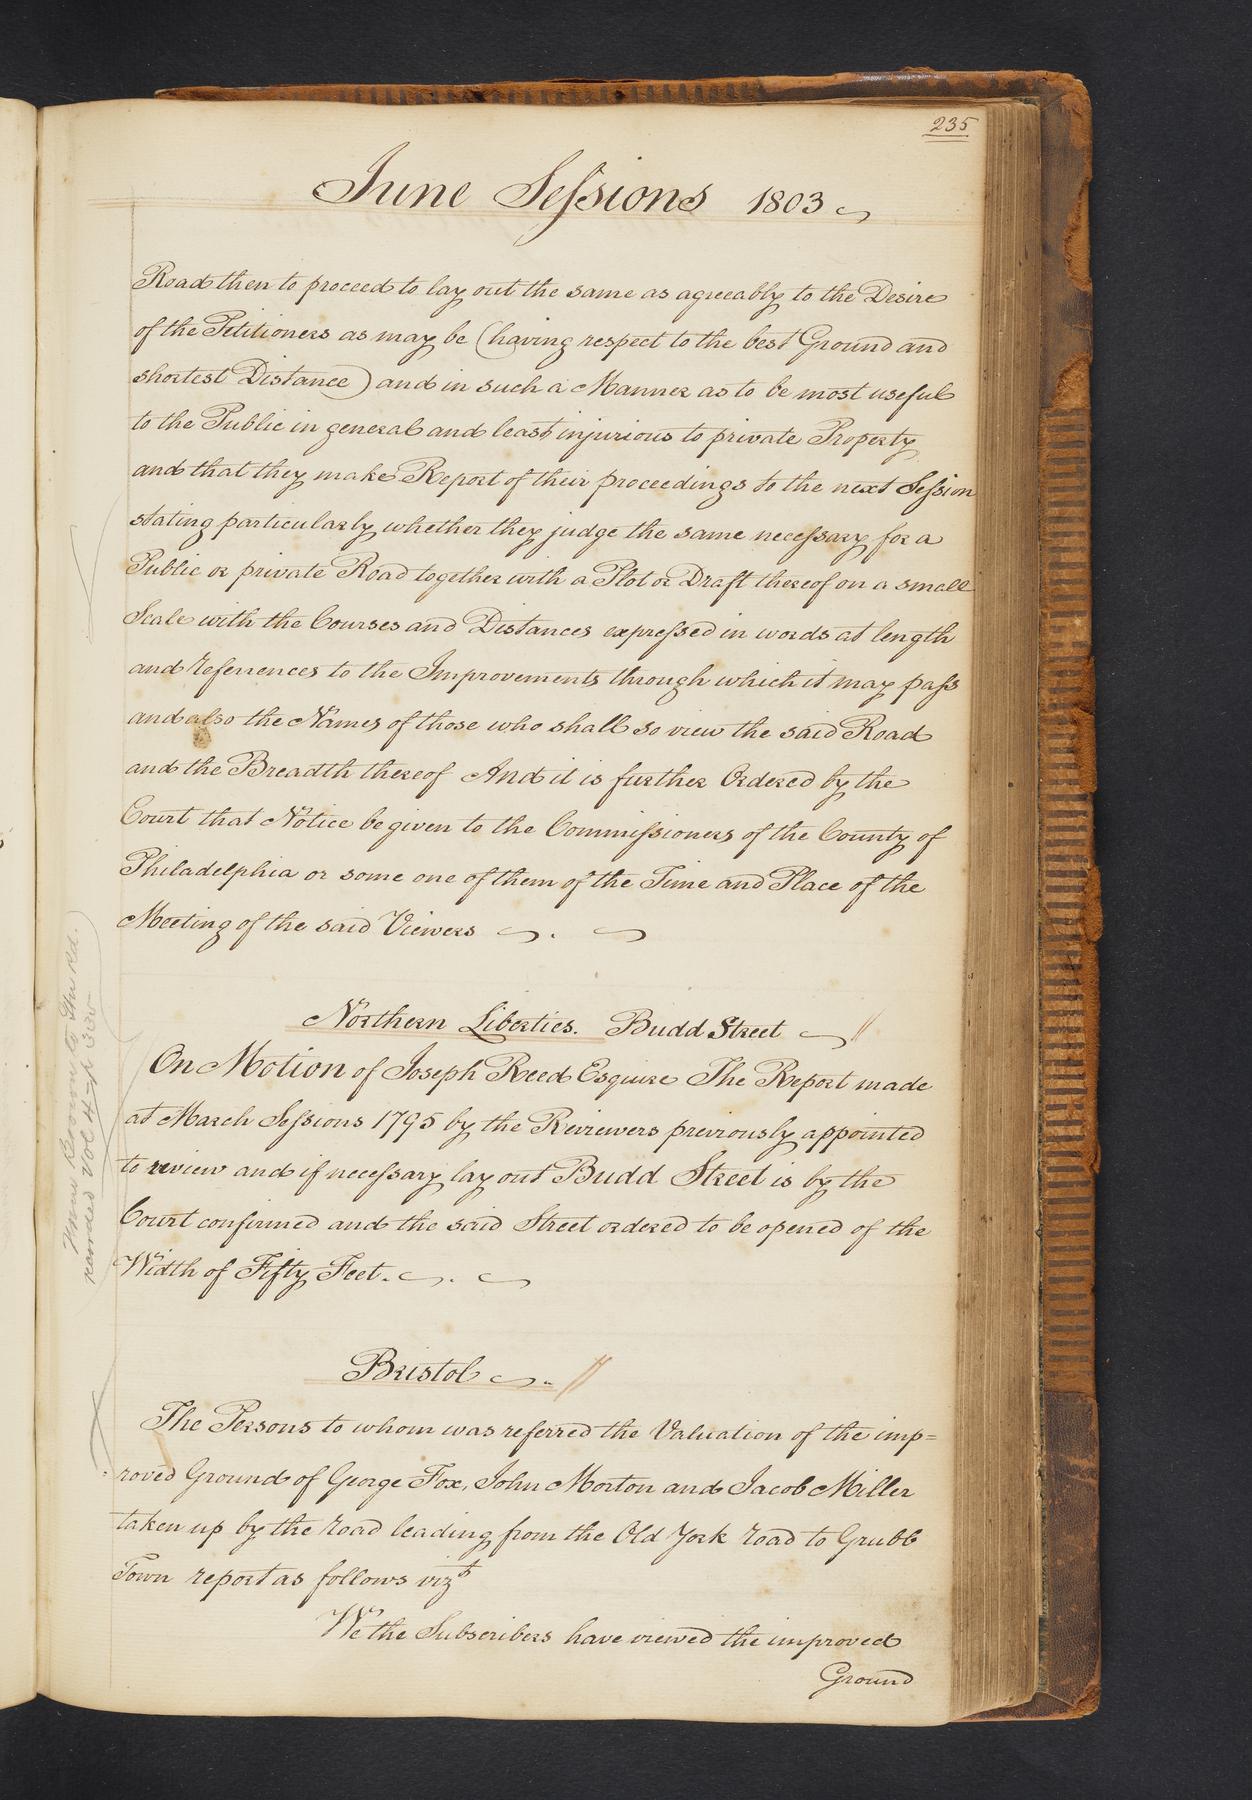 235
June Sessions 1803
Road then to proceed to lay out the same as agreeably to the Desire
of the Petitioners as may be (having respect to the best Ground and
shortest Distance) and in such a Manner as to be most useful
to the Public in general and least injurious to private Property
and that they make Report of their proceedings to the next Session
stating particularly whether they judge the same necessary for a
Public or private Road together with a Plot or Draft thereof on a small
Scale with the Courses and Distances expressed in words at length
and references to the Improvements through which it may pass
and also the Names of those who shall so view the said Road
and the Breadth thereof And it is further Ordered by the
Court that Notice be given to the Commissioners of the County of
Philadelphia or some one of them of the Time and Place of the
Meeting of the said Viewers
Northern Liberties. Budd Street
On Motion of Joseph Reed Esquire The Report made
at March Sessions 1795 by the Reviewers previously appointed
to review and if necessary lay out Budd Street is by the
Court confirmed and the said Street ordered to be opened of the
Width of Fifty Feet.
Bristol
The Persons to whom was referred the Valuation of the imp=
roved Ground of George Fox, John Morton and Jacob Miller
taken up by the road leading from the Old York road to Grubb
Town report as follows vizt
We the Subscribers have viewed the improved
Ground
vol 4 p 300